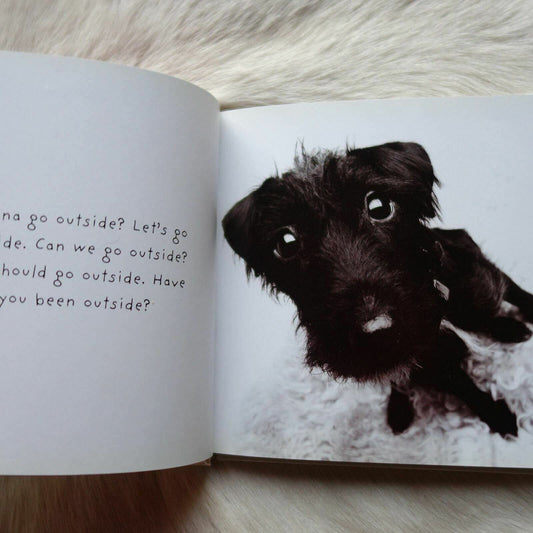 na go outside? Let's go
ide. Can we go outside?
hould go outside. Have
you been outside?